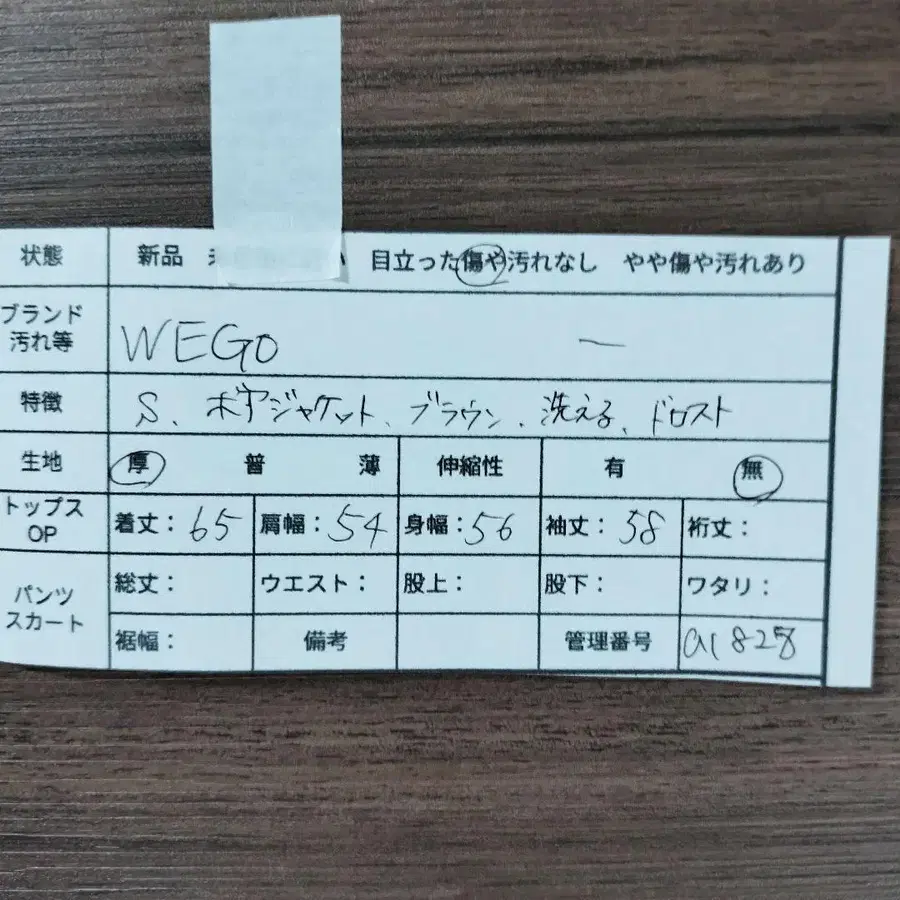 状態 新品 目立った傷や汚れなし やや傷や汚れあり
ブランド
汚れ等 WEGO ー
特徴 S、ボアジャケット、ブラウン、洗える、ドロスト
生地 厚 普 薄 伸縮性 有 無
トップス
OP 着丈：65 肩幅：54 身幅：56 袖丈：58 裄丈：
パンツ
スカート 総丈： ウエスト： 股上： 股下： ワタリ：
裾幅： 備考 管理番号 a1828